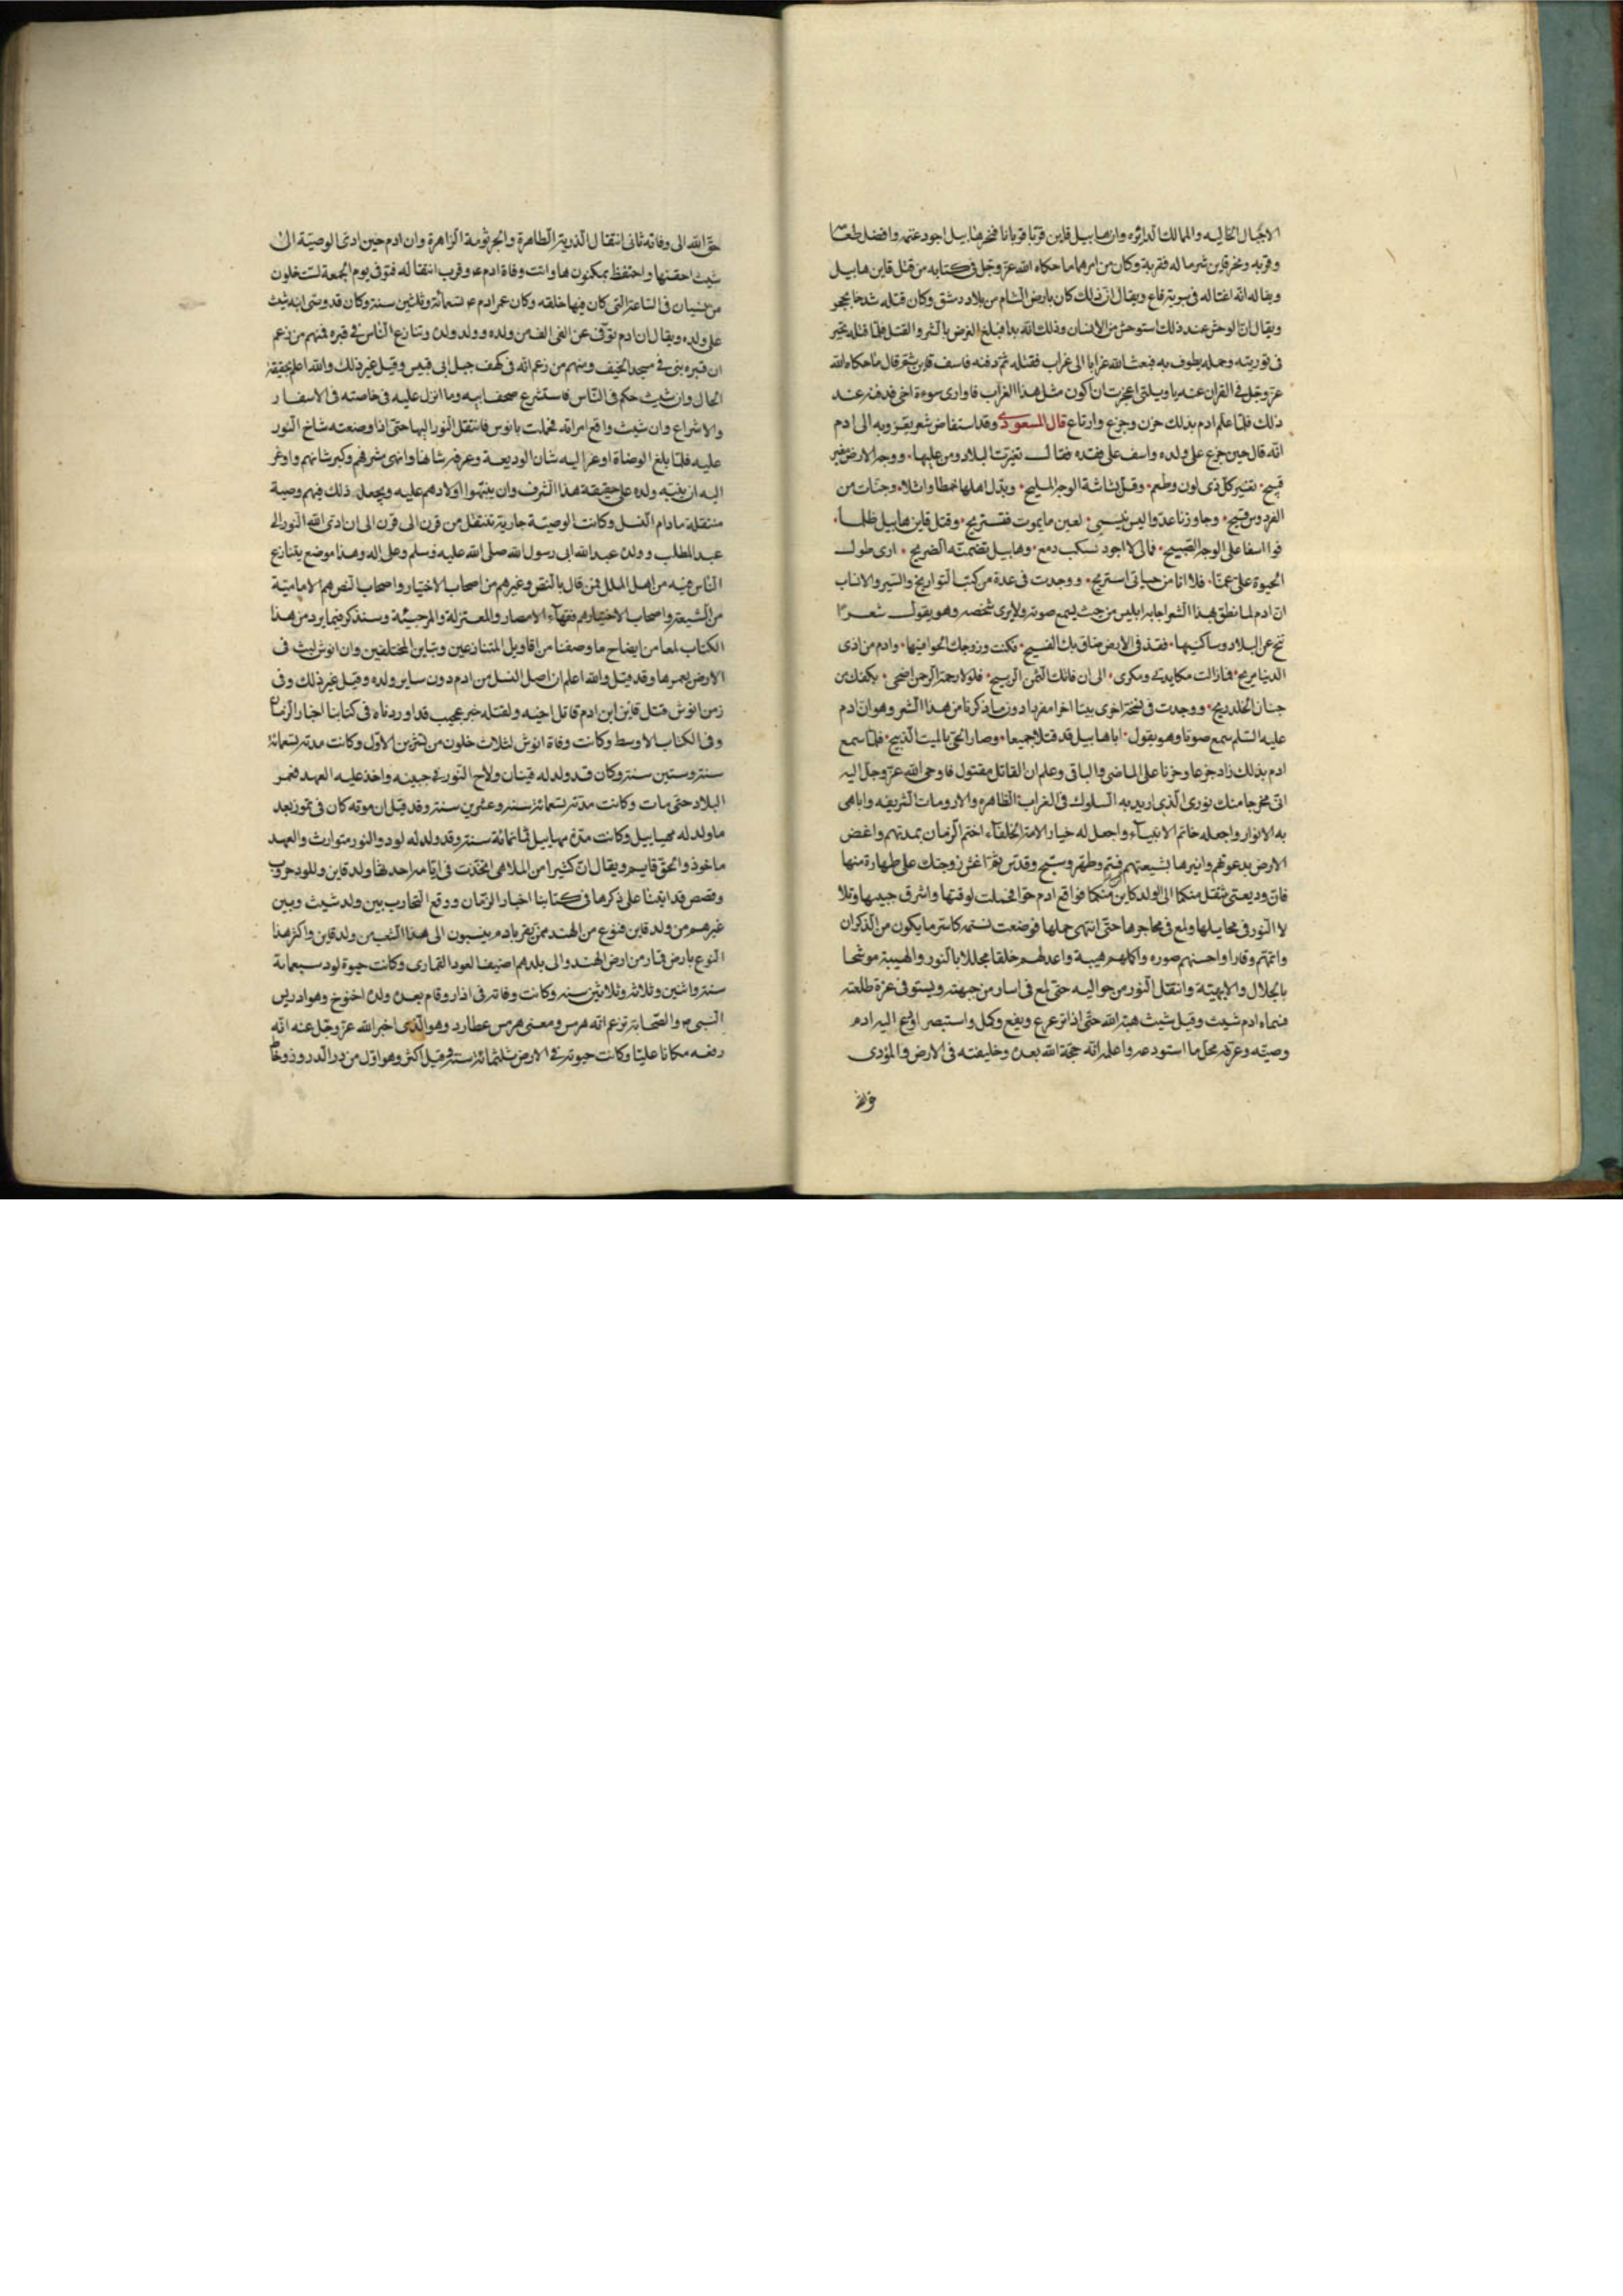 الاجيال الخاليه والممالك الداثره وان هابيل قاين قربا قربانا فتحر هابيل اجود غنمه وافضل طعما
وقربه وتحر قاين شر ماله فقربه وكان من امرهما ما حكاه الله عز وجل في كتابه من قتل قاين هابيل
ويقال انه اغتاله في برية قاع ويقال ان ذلك كان بارض الشام من بلاد دمشق وكان قتله شدخا بحجر
ويقال ان الوحش عند ذلك استوحش من الانسان وذلك انه بدا فبلغ الغرض بالشر والقتل فلما قتله تحير
في توريته وحمله يطوف به فبعث الله غرابا الى غراب فقتله ثم دفنه فاسف قاين ثم قال ما حكاه الله
عز وجل في القران عنه يا ويلتي اعجزت ان اكون مثل هذا الغراب فاوارى سوءة اخي فدفنه عند
ذلك فلما علم ادم بذلك حزن وجزع وارتاع قال المسعودى وقد استفاض شعر يعزونه الى ادم
انه قال حين جزع على ولده واسف على فقده فقال تغيرت البلاد ومن عليها ٠ ووجه الارض مغبر
قبيح ٠ تغير كل ذى لون وطعم ٠ وقل بشاشة الوجه المليح ٠ وبدل اهلها خمطا واثلا ٠ وجنات من
الفردوس فيح ٠ وجاورنا عدوا ليس ينسى ٠ لعين ما يموت فنستريح ٠ وقتل قاين هابيل ظلما ٠
فوا اسفا على الوجه الصبيح ٠ فمالي لا اجود بسكب دمع ٠ وهابيل تضمنه الضريح ٠ ارى طول
الحيوة علي غما ٠ فلا انا من حياتي استريح ٠ ووجدت في عدة من كتب التواريخ والسير والانساب
ان ادم لما نطق بهذا الشعر اجابه ابليس من حيث يسمع صوته ولا يرى شخصه وهو يقول شعرا
تنح عن البلاد وساكنيها ٠ فقد في الارض ضاق بك الفسيح ٠ وكنت وزوجك الحوا فيها ٠ وادم من اذى
الدنيا مريح ٠ فما زالت مكايدتي ومكرى ٠ الى ان فاتك الثمن الربيح ٠ فلولا رحمة الرحمن اضحى ٠ بكفك من
جنان الخلد ريح ٠ ووجدت في نسخة اخرى بيتا اخر مفردا دون ما ذكرنا من هذا الشعر وهو ان ادم
عليه السلم سمع صوتا وهو يقول ٠ ابا هابيل قد قتلا جميعا ٠ وصار الحي بالميت الذبيح ٠ فلما سمع
ادم بذلك زاد جزعا وحزنا على الماضي والباقي وعلم ان القاتل مقتول فاوحى الله عز وجل اليه
اني مخرجا منك نورى الذى اريد به السلوك في القرابة الظاهره والارومات الشريفه واباهي
به الانوار واجعله خاتم الانبياء واجعل له خيار الامة الخلفاء اختم الزمان بمدتهم واغض
الارض بدعوتهم وانيرها بشيعتهم فتم وطهر وسبح وقدس ثم اغش زوجتك على طهارة منها
فان وديعتي تنتقل منكما الى الولد كاين منكما فواقع ادم حوا فحملت لوقتها واشرق جبينها وتلا
لا النور في مخايلها ولمع في محاجرها حتى انتهى حملها فوضعت نسمة كاسر ما يكون من الذكران
واتمتهم وقارا واحسنهم صوره واكملهم هيبة واعدلهم خلقا مجللا بالنور والهيبة موشحا
بالجلال والابهة وانتقل النور من حوا اليه حتى لمع في اسارير جبهته وبسق في غرة طلعته
فسماه ادم شيث وقيل شيث هبة الله حتى اذا ترعرع ويفع وكمل واستبصر اوعز اليه ادم
وصيته وعرفه محل ما استودعه واعلمه انه حجة الله بعده وخليفته في الارض والمؤدى
حق الله
حق الله الى وفاته ثاني انتقال الذرية الطاهرة والجرثومة الزاهرة وان ادم حين ادى الوصية الى
شيث احقنها واحتفظ بمكنونها وانت وفاة ادم ع وقرب انتقاله فتوفى يوم الجمعة لست خلون
من نيسان في الساعة التي كان فيها خلقه وكان عمر ادم ع تسعمائة وثلثين سنة وكان قد وصى ابنه شيث
على ولده ويقال ان ادم توفى عن الفي الف من ولده وولد ولده وتنازع الناس في قبره فمنهم من زعم
ان قبره بمنى في مسجد الخيف ومنهم من زعم انه في كهف جبل ابي قبيس وقيل غير ذلك والله اعلم بحقيقة
الحال وان شيث حكم في الناس فاستشرع صحف ابيه وما انزل عليه في خاصته في الاسفار
والاشراع وان شيث واقع امراته فحملت بانوس فانتقل النور اليها حتى اذا وضعته شاخ النور
عليه فلما بلغ الوضاة اوعز اليه شان الوديعة وعرفه شانها وانهى شرفهم وكبر شانهم واوعز
اليه ان ينبه ولده على حقيقة هذا الشرف وان ينبهوا اولادهم عليه ويجعل ذلك فيهم وصية
منتقلة ما دام النسل وكانت الوصية جارية تنتقل من قرن الى قرن الى ان ادى الله النور الى
عبد المطلب وولده عبد الله ابي رسول الله صلى الله عليه وسلم وعلى اله وهذا موضع يتنازع
الناس فيه من اهل الملل فمن قال بالنص وغيرهم من اصحاب الاختيار واصحاب النص هم الامامية
من الشيعة واصحاب الاختيار هم فقهاء الامصار والمعتزلة والمرجئة وسنذكر فيما يرد من هذا
الكتاب لمعا من ايضاح ما وصفنا من اقاويل المتنازعين وتباين المختلفين وان انوش لبث في
الارض يعمرها وقد قيل والله اعلم ان اصل النسل من ادم دون ساير ولده وقيل غير ذلك وفي
زمن انوش قتل قاين ابن ادم قاتل اخيه ولقتله خبر عجيب قد اوردناه في كتابنا اخبار الزمان
وفي الكتاب الاوسط وكانت وفاة انوش لثلاث خلون من تشرين الاول وكانت مدته تسعمائة
سنة وستين سنة وكان قد ولد له قينان ولاح النور في جبينه واخذ عليه العهد فعمر
البلاد حتى مات وكانت مدته تسعمائة سنه وعشرين سنة وقد قيل ان موته كان في تموز بعد
ما ولد له مهياييل وكانت مدة مهاييل ثمانمائة سنة وقد ولد له لود والنور متوارث والعهد
ماخوذ والحق قايم ويقال ان كثيرا من الملاهي اتخذت في ايامه احدثها ولد قاين وللود حروب
وقصص قد اتينا على ذكرها في كتابنا اخبار الزمان ووقع التحارب بين ولد شيث وبين
غيرهم من ولد قاين فنوع من الهند ممن يقر بادم ينسبون الى هذا الشعب من ولد قاين واكثر هذا
النوع بارض قمار من ارض الهند والى بلدهم اضيف العود القمارى وكانت حيوة لود سبعمائة
سنة واثنين وثلاثة وثلاثين سنه وكانت وفاته في اذار وقام بعده ولده اخنوخ وهو ادريس
النبي ص والصابة تزعم انه هرمس ومعنى هرمس عطارد وهو الذى اخبر الله عز وجل عنه انه
رفعه مكانا عليا وكانت حيوته في الارض ثلثمائة سنة وقيل اكثر وهو اول من درز الدروز وخاط